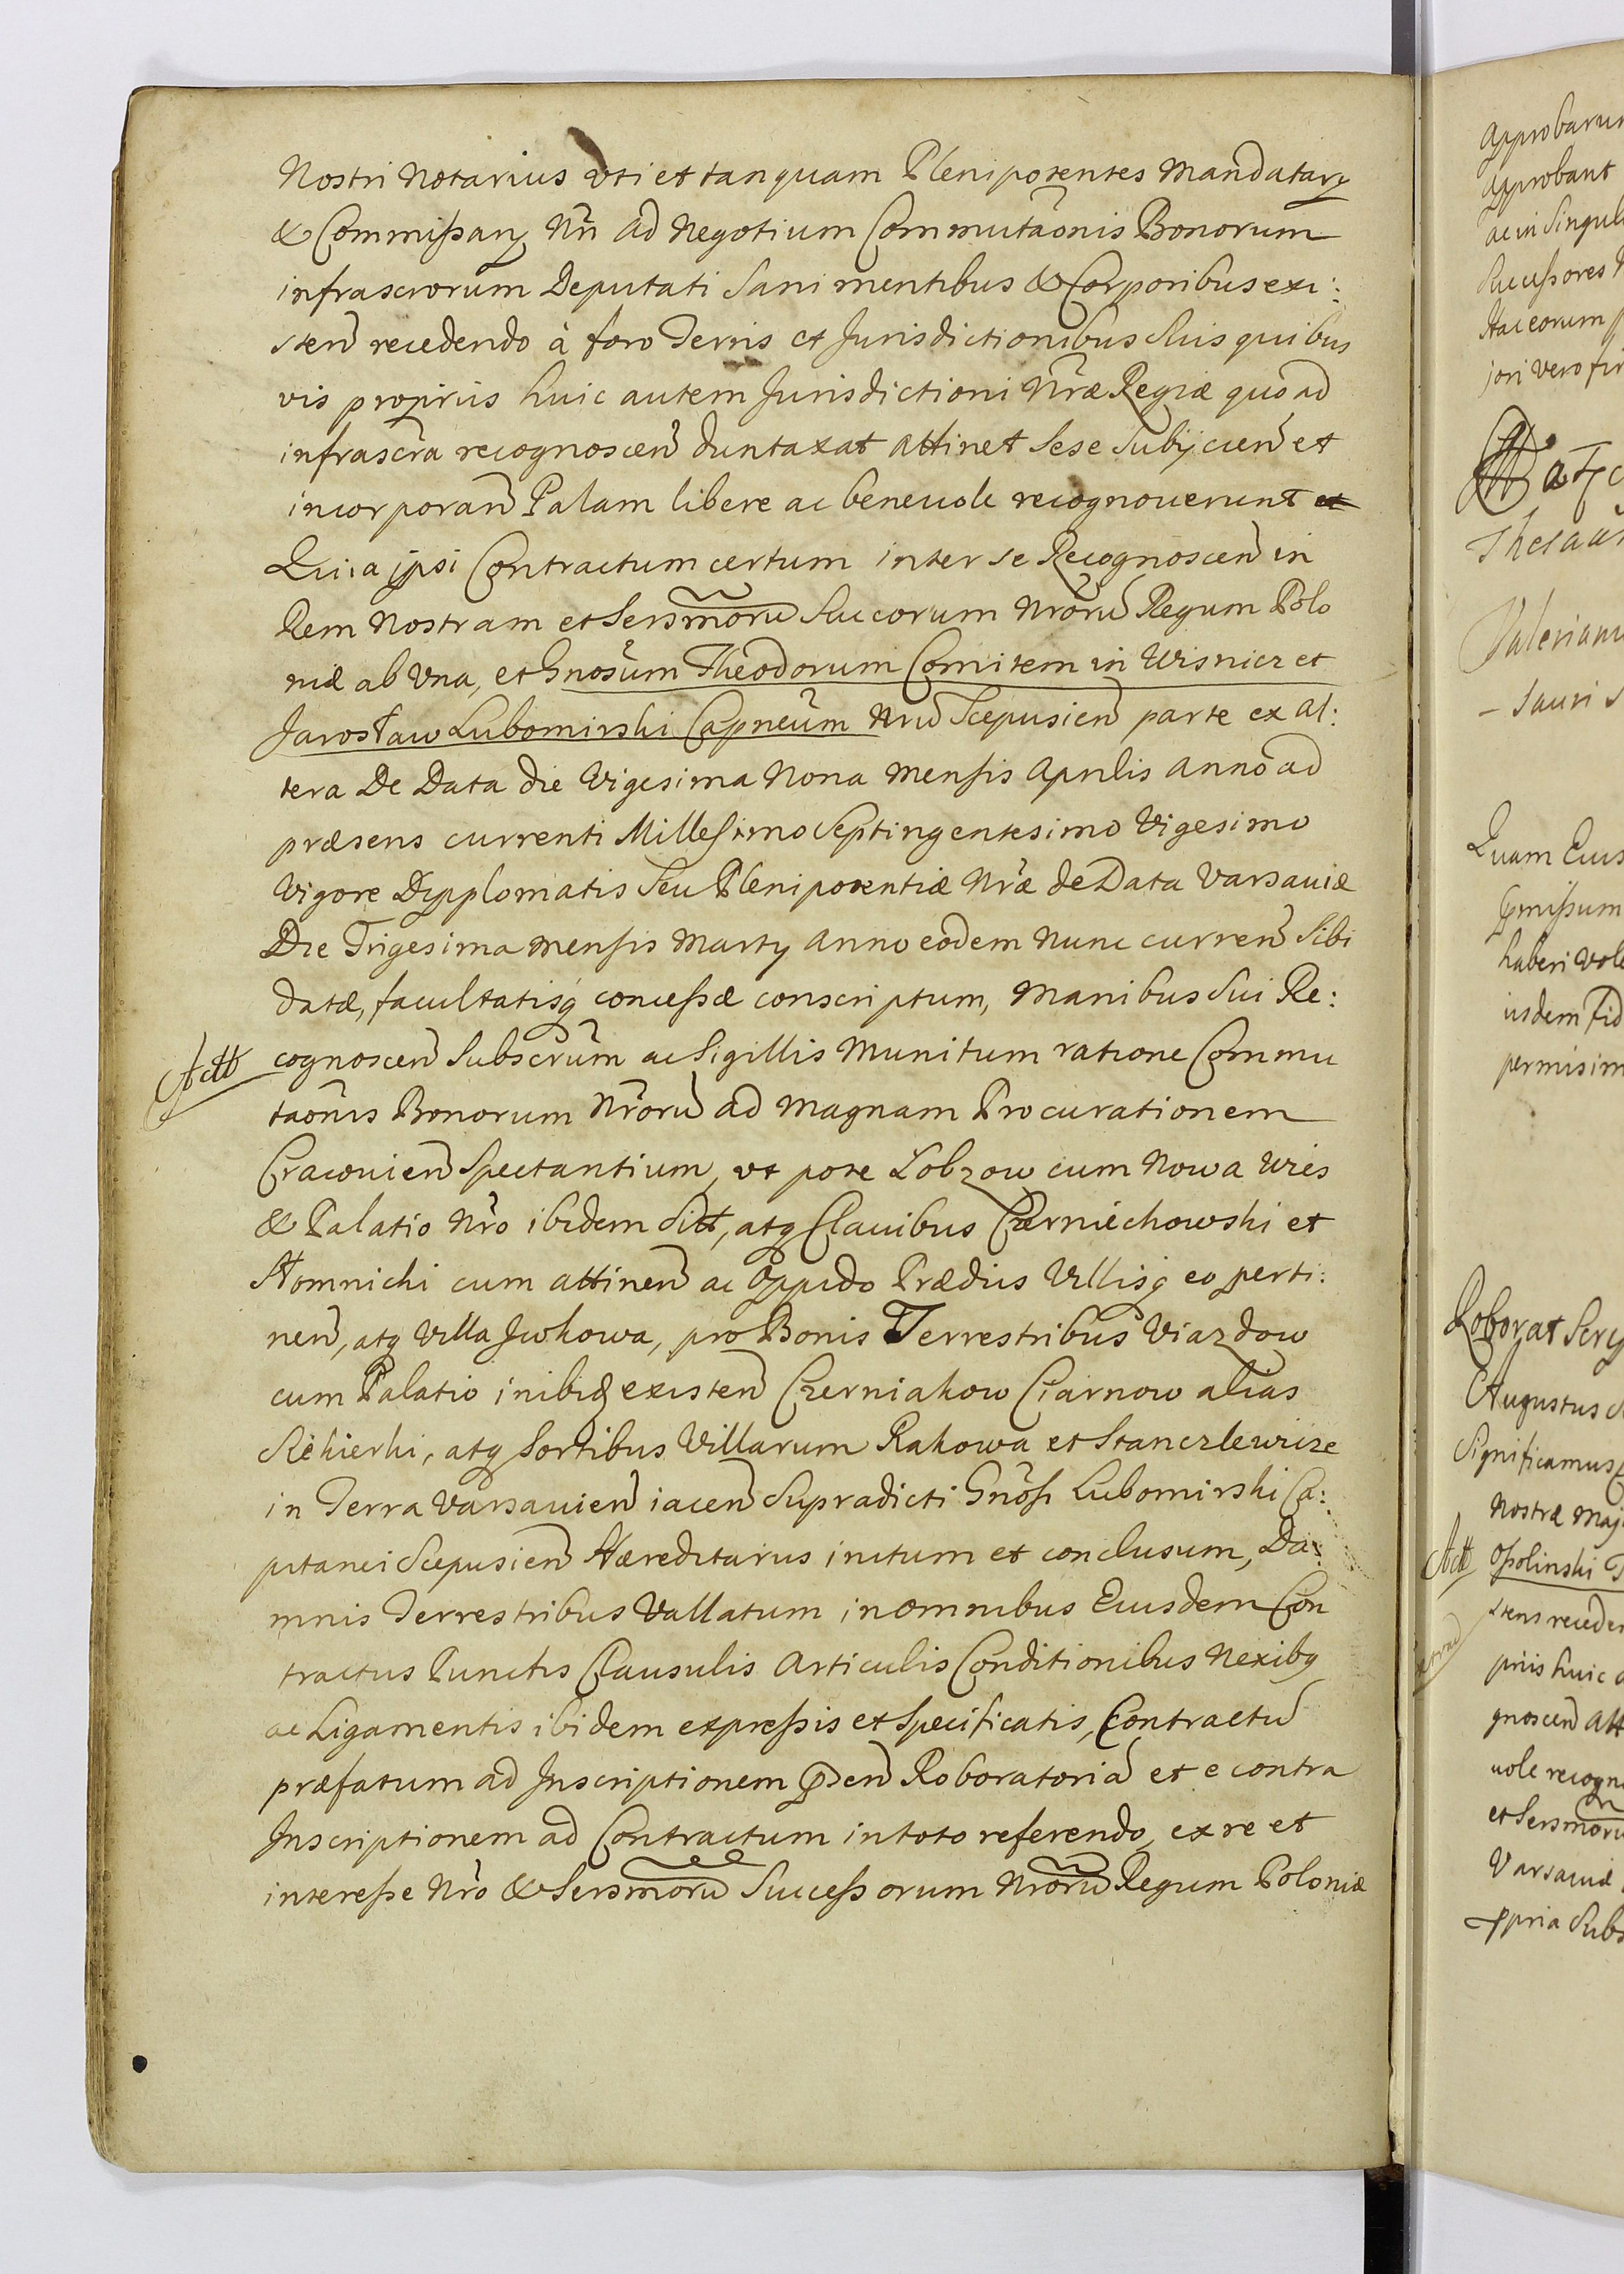 Nostri Notarius vti et tanquam Plenipotentes Mandatarij
& Commißarij Nri ad Negotium Commutaonis Bonorum
infrascrorum Deputati Sani mentibus & Corporibus exi:
sten recedendo à foro Terris et Jurisdictionibus Suis quibus
vis proprijs huic autem Jurisdictioni Nræ Regiæ quoad
infrascra recognoscen duntaxat attinet Sese Subijcien et
incorporan Palam libere ac beneuole recognouerunt et
Quia ipsi Contractum certum inter se Recognoscen in
Rem Nostram et Sersmorū Succorum Nrorū Regum Polo
niæ ab Vna, et Gnosum Theodorum Comitem in Wisnicz et
Jarosław Lubomirski Capneum Nrū Scepusien parte ex al:
tera De Data die Vigesima Nona Mensis Aprilis Anno ad
præsens currenti Millesimo Septingentesimo Vigesimo
Vigore Dypplomatis Seu Plenipotentiæ Nræ de Data Varsauiæ
Die Trigesima Mensis Martij Anno eodem Nunc curren Sibi
datæ, facultatisq conceßæ conscriptum, Manibus Sui Re:
Actt cognoscen Subscrum ac Sigillis Munitum ratione Commu
taonis Bonorum Nrorū ad Magnam Procurationem
Cracouien Spectantium, vt pote Łobzow cum Nowa Wies
& Palatio Nro ibidem Sitt, atq Clauibus Czerniechowski et
Homnichi cum attinen ac Oppido Prædijs Villisq eo perti:
nen, atq Villa Jwkowa, pro Bonis Terrestribus Viazdow
cum Palatio inibiq existen Czerniakow Ciarnow alias
Siekierki, atq Sortibus Villarum Rakowa et Stanczlewize
in Terra Varsauien iacen Supradicti Gnosi Lubomirski Ca:
pitanei Scepusien Hæreditarijs initum et conclusum, Da:
mnis Terrestribus Vallatum in omnibus Eiusdem Con
tractus Punctis Clausulis Articulis Conditionibus Nexibq
ac Ligamentis ibidem expreßis et Specificatis, Contractū
præfatum ad Inscriptionem pden Roboratoriā et e contra
Inscriptionem ad Contractum in toto referendo, ex re et
intereße Nro & Sersmorū Succeßorum Nrorū Regum Poloniæ